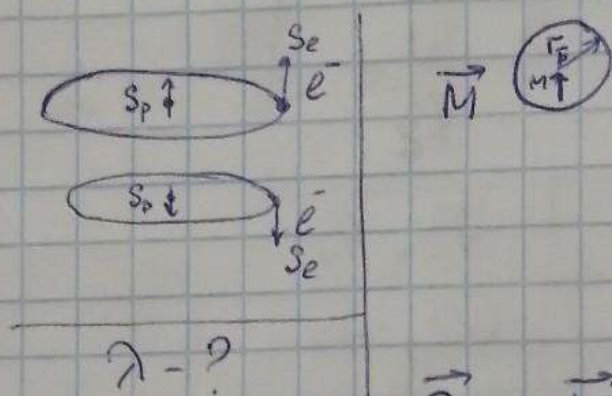 Se
e⁻
Sp
Sp
e⁻
Se
λ - ?
M
rE
M